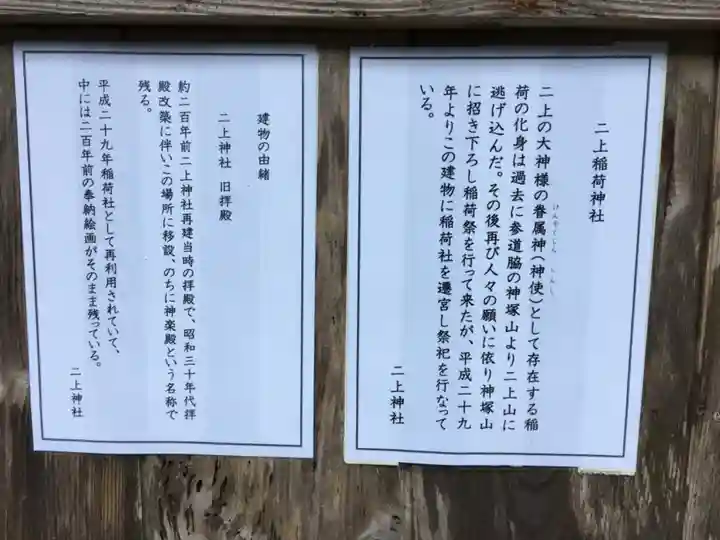 二上稲荷神社
二上の大神様の眷属神(神使)として存在する稲
荷の化身は過去に参道脇の神塚山より二上山に
逃げ込んだ。その後再び人々の願いに依り神塚山
に招き下ろし稲荷祭を行って来たが、平成二十九
年よりこの建物に稲荷社を遷宮し祭祀を行なって
いる。
二上神社
建物の由緒
二上神社 旧拝殿
約二百年前二上神社再建当時の拝殿で、昭和三十年代拝
殿改築に伴いこの場所に移設、のちに神楽殿という名称で
残る。
平成二十九年稲荷社として再利用されていて、
中には二百年前の奉納絵画がそのまま残っている。
二上神社